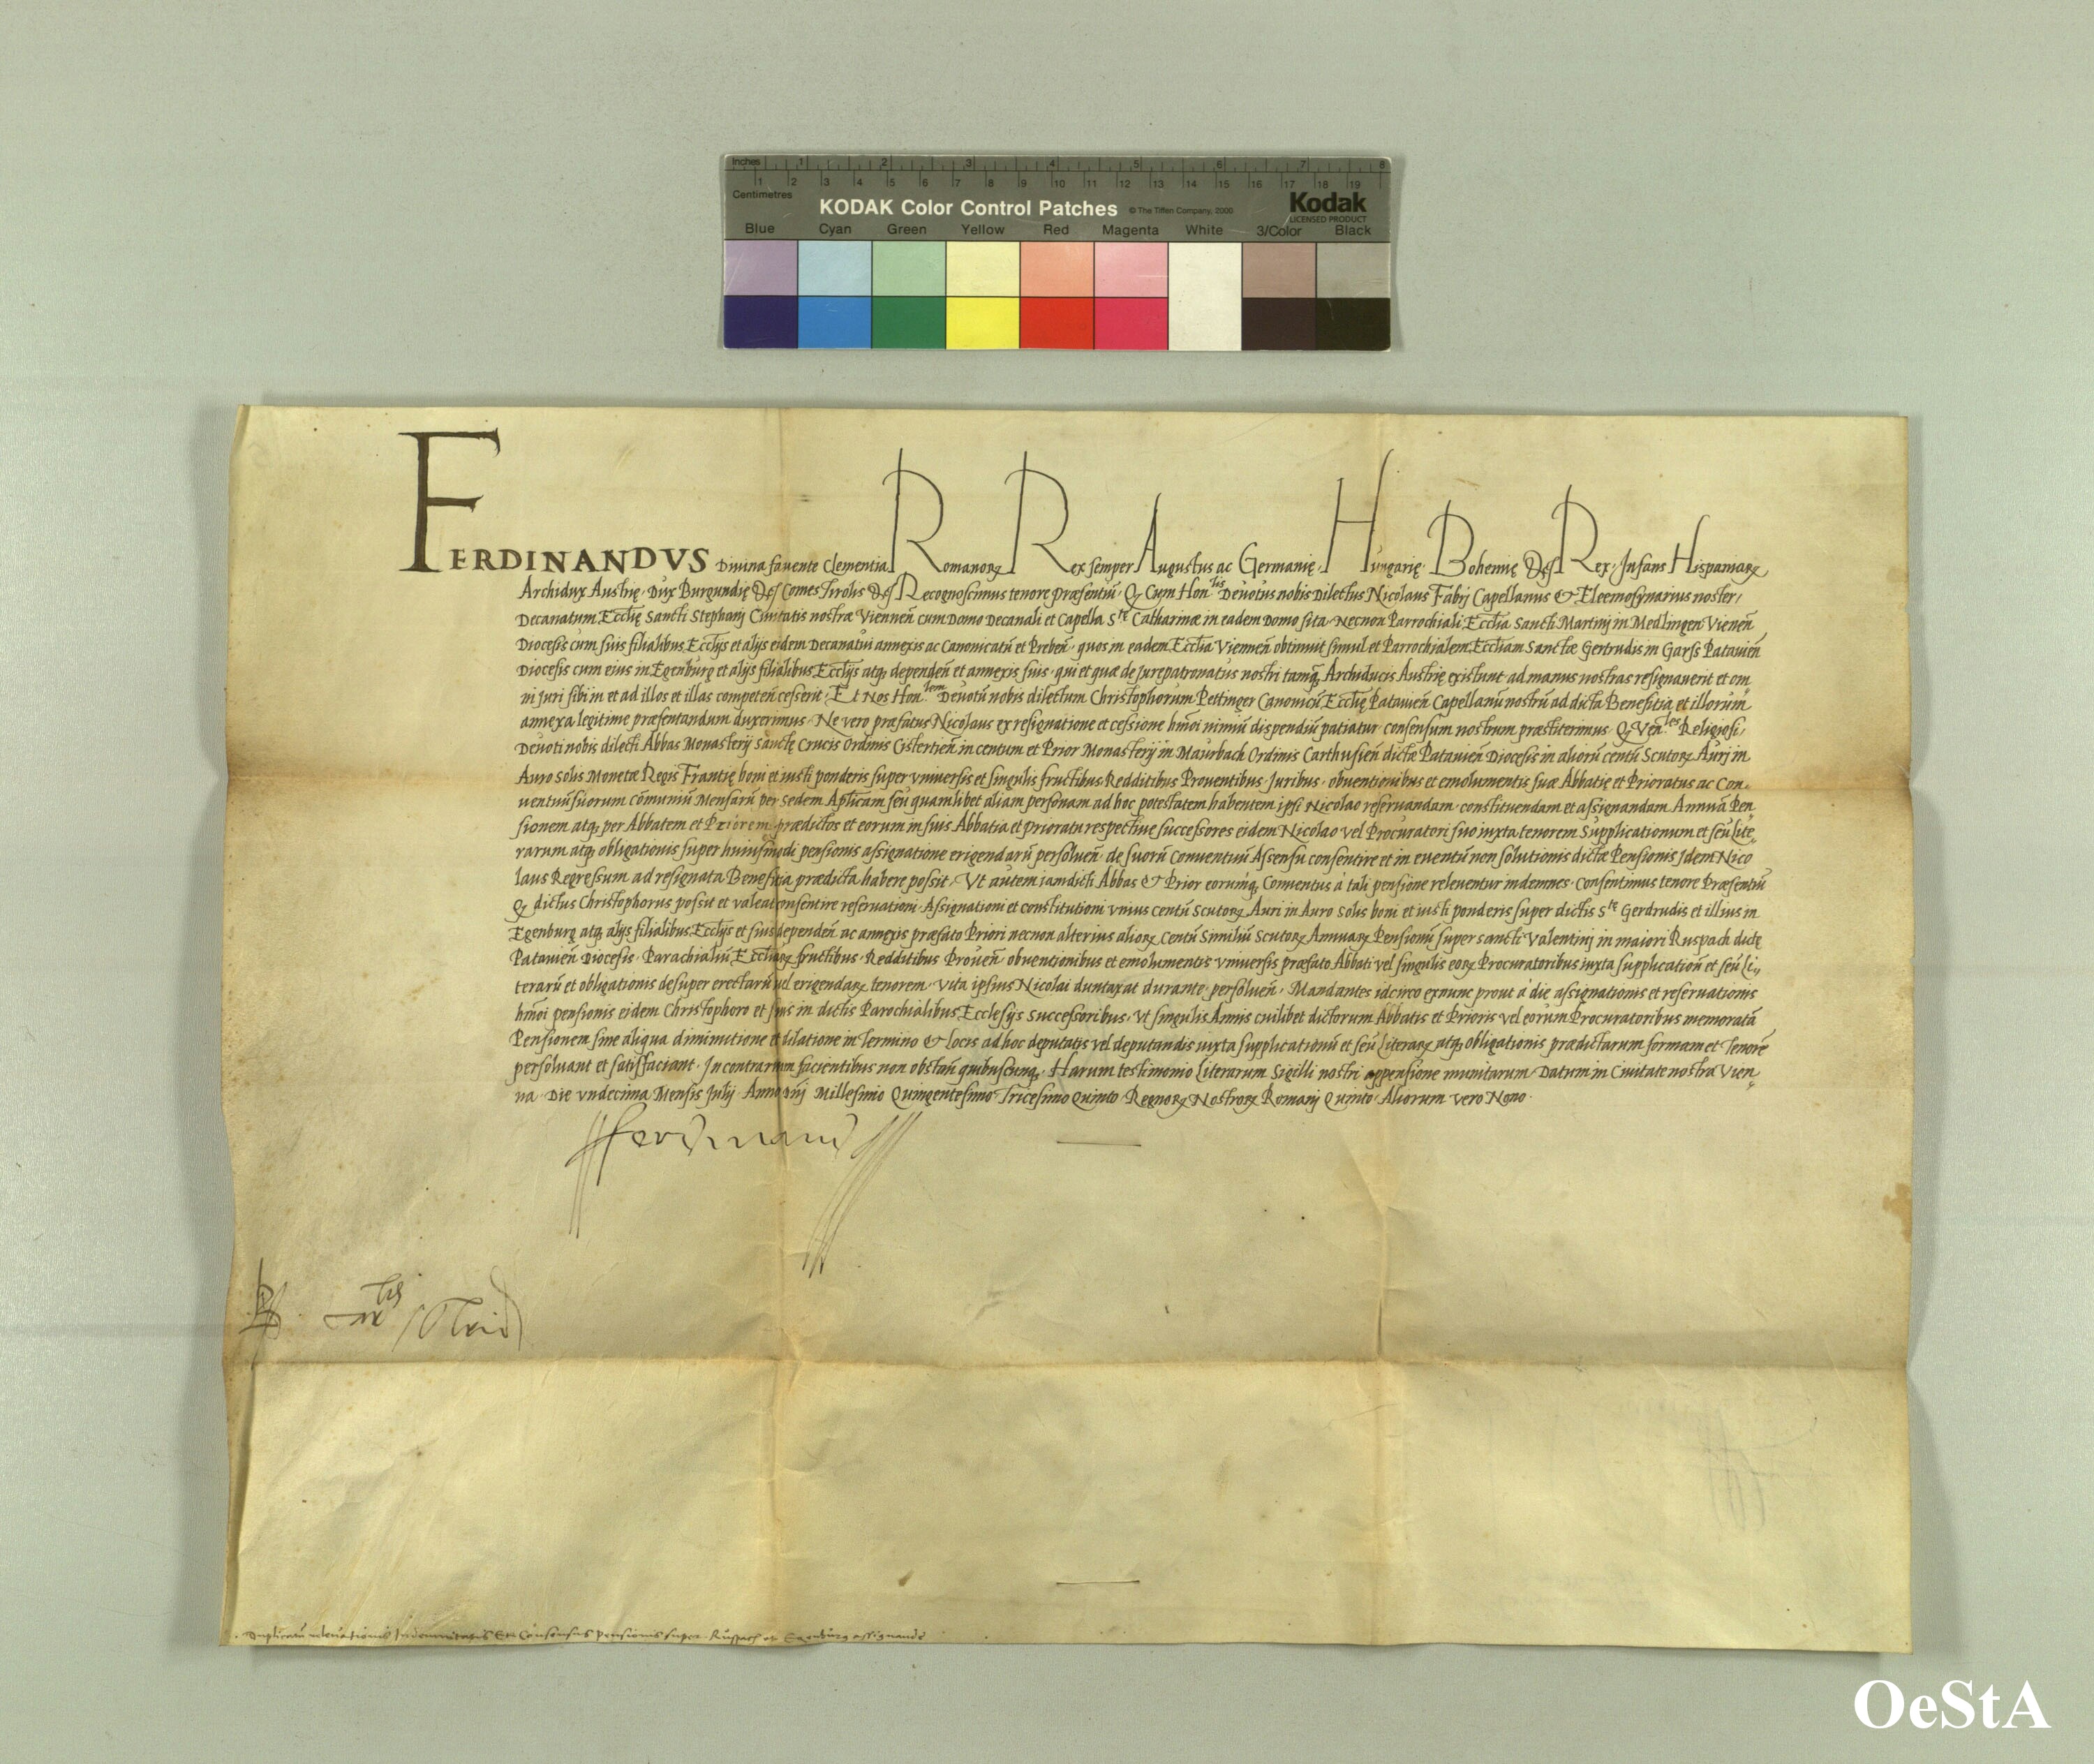 Inches 1 2 3 4 5 6 7 8
1 2 3 4 5 6 7 8 9 10 11 12 13 14 15 16 17 18 19
Centimetres
KODAK Color Control Patches © The Tiffen Company, 2000 Kodak
LICENSED PRODUCT
Blue Cyan Green Yellow Red Magenta White 3/Color Black
FERDINANDVS Diuina fauente Clementia Romanorꝝ Rex semper Augustus ac Germanię, Hungarię, Bohemię &c Rex, Infans Hispaniarꝝ
Archidux Austrię, Dux Burgundię &c Comes Tirolis &c Recognoscimus tenore præsentiũ Q Cum Hon.lis Deuotus nobis Dilectus Nicolaus Fabrj Capellanus & Eleemosynarius noster,
Decanatum Ecclię Sancti Stephanj Ciuitatis nostræ Vienneñ cum Domo Decanali et Capella S.te Catharinæ in eadem Domo sita, Necnon Parrochiali Ecclia Sancti Martinj in Medlingen Vieneñ
Diocesis cum suis filialibus Ecclijs et alijs eidem Decanatui annexis ac Canonicatũ et Prebeñ, quos in eadem Ecclia Vienneñ obtinuit simul et Parrochialem Eccliam Sanctæ Gertrudis in Garss Patauieñ
Diocesis cum eius in Egenburg et alijs filialibus Ecclijs atq; dependeñ et annexis suis, qui et quæ de Jurepatronatus nostri tamq̃ Archiducis Austrię existunt, ad manus nostras resignauerit et om„
ni juri sibi in et ad illos et illas competeñ cesserit, Et Nos Hon.lem Deuotũ nobis dilectum Christophorum Pettinger Canonicũ Ecclię Patauieñ Capellanũ nostrũ ad dicta Benefitia et illorum
annexa legitime præsentandum duxerimus, Ne vero præfatus Nicolaus ex resignatione et cessione hmõi nimiũ dispendiũ patiatur, consensum nostrum præstiterimus, Q Ven.les Religiosi,
Deuoti nobis dilecti Abbas Monasterij Sanctę Crucis Ordinis Cistertieñ in centum et Prior Monasterij in Maurbach Ordinis Carthusieñ dictæ Patauieñ Diocesis in aliorũ centũ Scutorꝝ Aurj in
Auro solis Monetæ Regis Frantię boni et iusti ponderis super vniuersis et singulis fructibus Redditibus Prouentibus, Juribus, obuentionibus et emolumentis suæ Abbatię et Prioratus ac Con„
uentuũ suorum cõmuniũ Mensarũ per sedem Apłicam seu quamlibet aliam personam ad hoc potestatem habentem ipsi Nicolao reseruandam, constituendam et assignandam Annuã Pen„
sionem atq; per Abbatem et Priorem prædictos et eorum in suis Abbatia et prioratu respectiue successores eidem Nicolao vel Procuratori suo iuxta tenorem Supplicationum et seu Lite„
rarum atq; obligationis super huiusmodi pensionis assignatione erigendarũ persolueñ, de suorũ Conuentuũ Assensu consentire et in euentũ non solutionis dictæ Pensionis Idem Nico
laus Regressum ad resignata Benefitia prædicta habere possit, Vt autem iamdicti Abbas & Prior eorumq; Conuentus à tali pensione releuentur indemnes, Consentimus tenore Præsentiũ
Q dictus Christophorus possit et valeat consentire reseruationi, Assignationi et constitutioni vnius centũ Scutorꝝ Auri in Auro solis boni et iusti ponderis super dictis S.te Gerdrudis et illius in
Egenburg atq; alijs filialibus Ecclijs et suis dependeñ ac annexis præfato Priori necnon alterius aliorꝝ Centũ Similiũ Scutorꝝ Annuarꝝ Pensionũ super Sancti Valentinj in maiori Ruspach dictę
Patauieñ Diocesis, Parachialiũ Eccliarꝝ fructibus, Redditibus Proueñ, obuentionibus et emolumentis vniuersis præfato Abbati vel singulis eorꝝ Procuratoribus iuxta supplicationũ et seu Li„
terarũ et obligationis desuper erectarũ vel erigendarꝝ tenorem, Vita ipsius Nicolai duntaxat durante, persolueñ, Mandantes idcirco exnunc prout à die assignationis et reseruationis
hmõi pensionis eidem Christophoro et suis in dictis Parochialibus Ecclesijs Successoribus, Vt singulis Annis cuilibet dictorum Abbatis et Prioris vel eorum Procuratoribus memoratã
Pensionem sine aliqua diminutione et dilatione in Termino & locis ad hoc deputatis vel deputandis iuxta supplicationũ et seu Literarꝝ atq; obligationis prædictarum formam et Tenorẽ
persoluant et satisfaciant, In contrarium facientibus non obstañ quibuscunq;, Harum testimonio Literarum Sigilli nostri appensione munitarum Datum in Ciuitate nostra Vien„
na, Die vndecima Mensis Julij, Anno Dnj Millesimo Quingentesimo Tricesimo Quinto, Regnorꝝ Nostrorꝝ Romanj Quinto, Aliorum vero Nono.
Ferdinand
Duplicatũ releuationis Indemnitatis Et Consensus Pensionis super Ruspach et Egenburg assignandę
OeStA